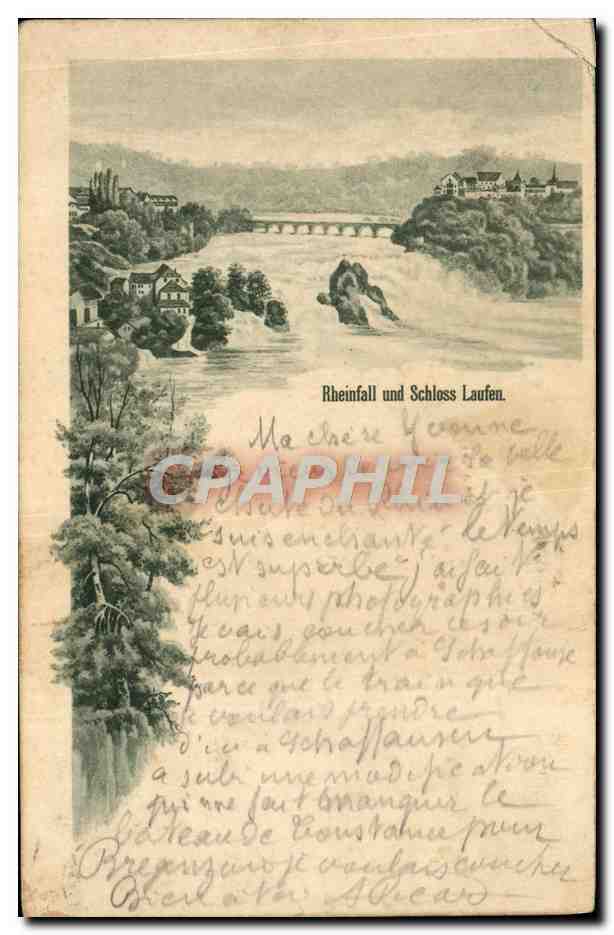 Rheinfall und Schloss Laufen.
Ma chère Yvonne
la belle
CPARPHIL
chute du je
suis enchanté le temps
est superbe j'ai fait
plusieurs photographies
je vais coucher ce soir
probablement à Schaffouse
parce que le train que
je voulais prendre
d'ici à Schaffausen
a subi une modification
qui me fait manquer le
bateau de Constance pour
Breganz où je voulais coucher
Bien à toi